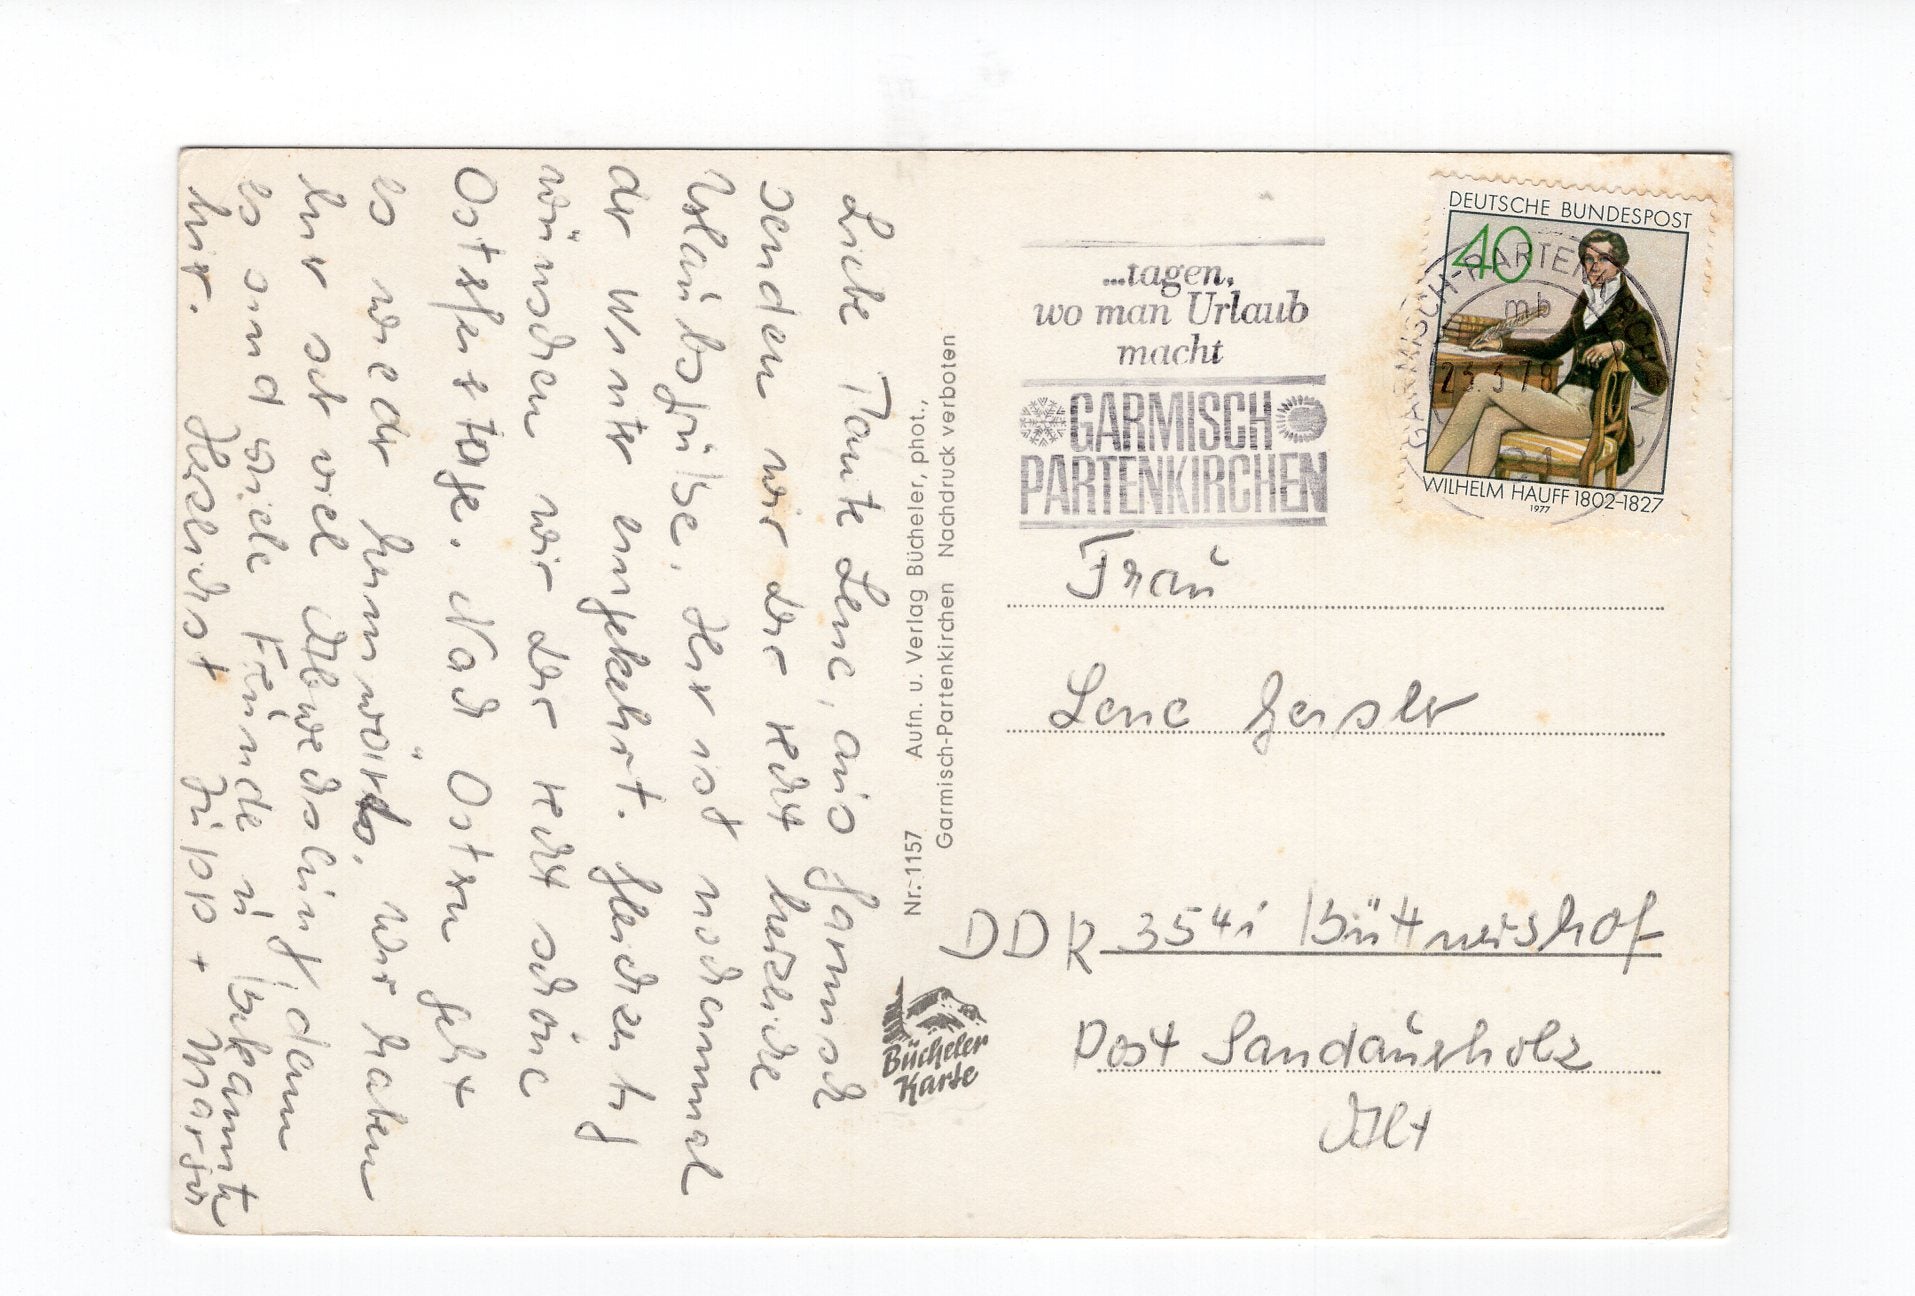 Liebe Tante Lene, aus Garmisch
senden wir Dir recht herzliche
Urlaubsgrüße. Hier ist nochenmal
der Winter eingekehrt. Gleichzeitig
wünschen wir Dir recht schöne
Ostfesttage. Nach Ostern geht
es wieder heimwärts. Wir haben
hier seh viel Abwechslung, denn
es sind viele Freunde u Bekannte
hier. Herzlichst Jupp +
Nr. 1157 Aufn. u. Verlag Bücheler, phot.,
Garmisch-Partenkirchen Nachdruck verboten
Bücheler
Karte
...tagen,
wo man Urlaub
macht
GARMISCH
PARTENKIRCHEN
DEUTSCHE BUNDESPOST
40
WILHELM HAUFF 1802-1827
1977
GARMISCH-PARTENKIRCHEN
mb
23.3.78
Frau
Lene Geisler
DDR 3541 Büttnershof
Post Sandauerholz
Alt